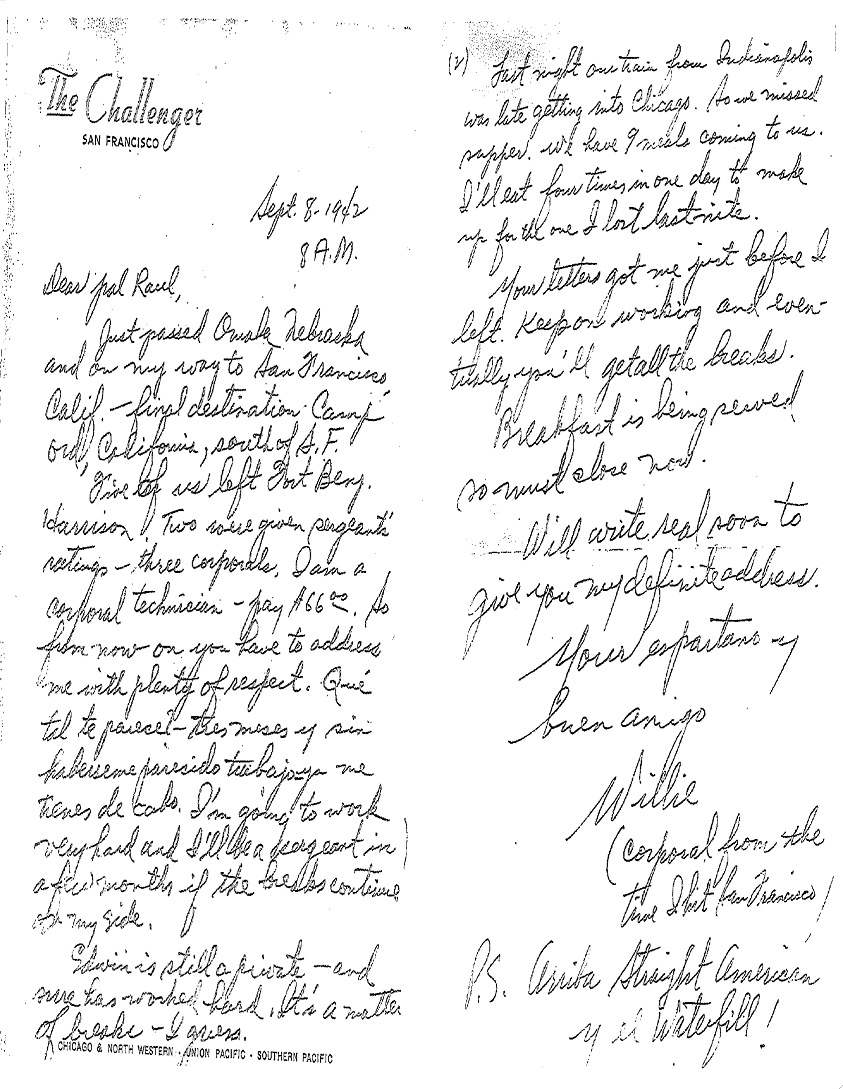 The Challenger
SAN FRANCISCO
Sept. 8-1942
8 A.M.
Dear pal Raul,
Just passed Omaha Nebraska
and on my way to San Francisco,
Calif. – final destination Camp
Ord, California, south of S.F.
Five of us left Fort Benj.
Harrison. Two were given sergeants'
ratings – three corporals. I am a
corporal technician – pay $66.00. So
from now on you have to address
me with plenty of respect. Qué
tal te parece? – tres meses y sin
haberseme parecido trabajo ya me
tienes de cabo. I'm going to work
very hard and I'll be a sergeant in
a few months if the breaks continue
on my side.
Edwin is still a private – and
sure has worked hard. It's a matter
of breaks – I guess.
CHICAGO & NORTH WESTERN - UNION PACIFIC - SOUTHERN PACIFIC
(2) Last night our train from Indianapolis
was late getting into Chicago. So we missed
supper. We have 9 meals coming to us.
I'll eat four times in one day to make
up for the one I lost last nite.
Your letters got me just before I
left. Keep on working and even-
tually you'll get all the breaks.
Breakfast is being served
so must close now.
Will write real soon to
give you my definite address.
Your espartano y
buen amigo
Willie
(corporal from the
time I hit San Francisco)
P.S. Arriba Straight American
y el Waterfill!